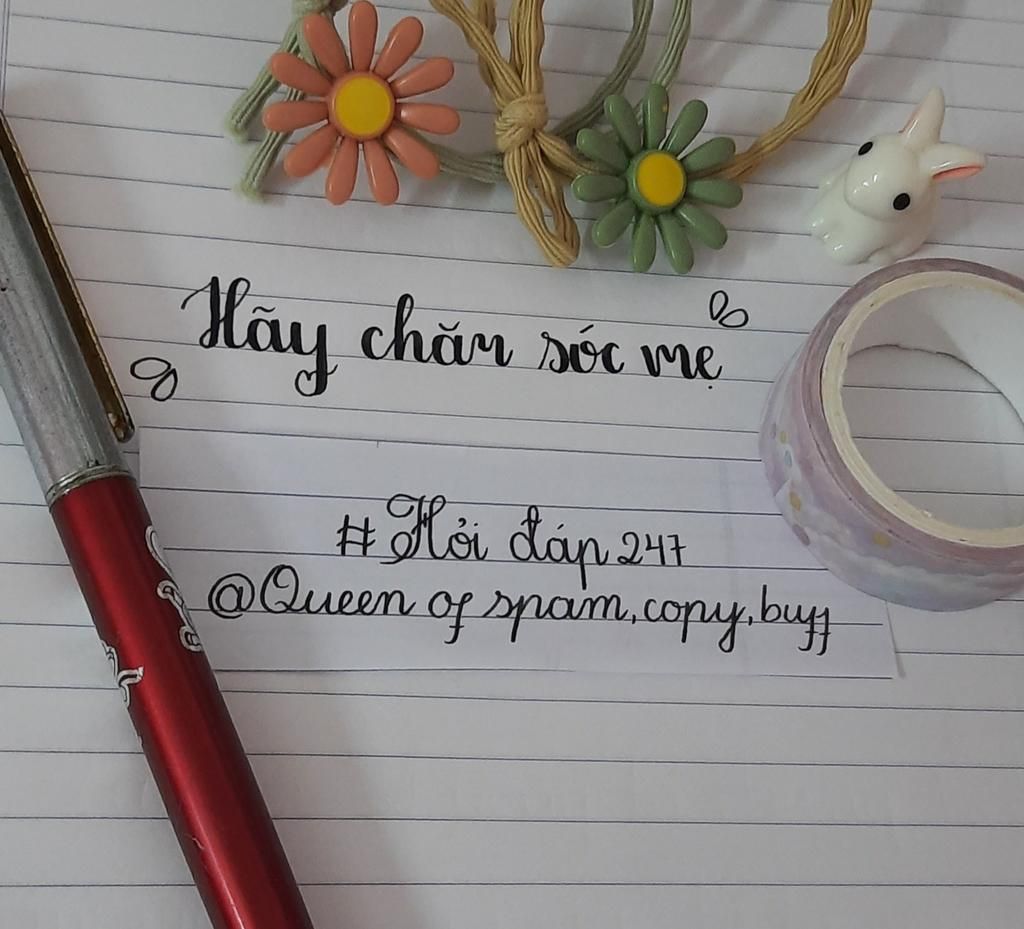 Hãy chăm sóc mẹ
#Hỏi đáp 247
@Queen of spam, copy, buff